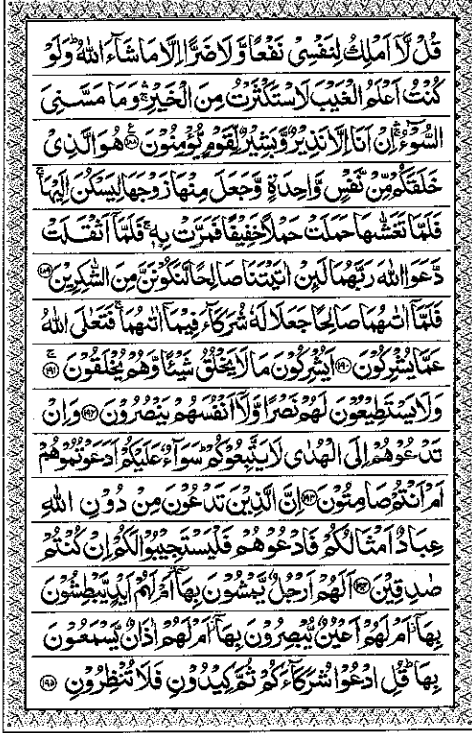 قُلْ لَّاۤ اَمْلِكُ لِنَفْسِیْ نَفْعًا وَّلَا ضَرًّا اِلَّا مَا شَآءَ اللّٰهُ ؕ وَلَوْ
كُنْتُ اَعْلَمُ الْغَیْبَ لَاسْتَكْثَرْتُ مِنَ الْخَیْرِ ۛۚ وَمَا مَسَّنِیَ
السُّوْٓءُ ۛۚ اِنْ اَنَا اِلَّا نَذِیْرٌ وَّبَشِیْرٌ لِّقَوْمٍ یُّؤْمِنُوْنَ ﴿۱۸۸﴾ هُوَ الَّذِیْ
خَلَقَكُمْ مِّنْ نَّفْسٍ وَّاحِدَةٍ وَّجَعَلَ مِنْهَا زَوْجَهَا لِیَسْكُنَ اِلَیْهَا ۚ
فَلَمَّا تَغَشّٰىهَا حَمَلَتْ حَمْلًا خَفِیْفًا فَمَرَّتْ بِهٖ ۚ فَلَمَّاۤ اَثْقَلَتْ
دَّعَوَا اللّٰهَ رَبَّهُمَا لَىِٕنْ اٰتَیْتَنَا صَالِحًا لَّنَكُوْنَنَّ مِنَ الشّٰكِرِیْنَ ﴿۱۸۹﴾
فَلَمَّاۤ اٰتٰىهُمَا صَالِحًا جَعَلَا لَهٗ شُرَكَآءَ فِیْمَاۤ اٰتٰىهُمَا ۚ فَتَعٰلَی اللّٰهُ
عَمَّا یُشْرِكُوْنَ ﴿۱۹۰﴾ اَیُشْرِكُوْنَ مَا لَا یَخْلُقُ شَیْـًٔا وَّهُمْ یُخْلَقُوْنَ ﴿۱۹۱﴾
وَلَا یَسْتَطِیْعُوْنَ لَهُمْ نَصْرًا وَّلَاۤ اَنْفُسَهُمْ یَنْصُرُوْنَ ﴿۱۹۲﴾ وَاِنْ
تَدْعُوْهُمْ اِلَی الْهُدٰی لَا یَتَّبِعُوْكُمْ ؕ سَوَآءٌ عَلَیْكُمْ اَدَعَوْتُمُوْهُمْ
اَمْ اَنْتُمْ صَامِتُوْنَ ﴿۱۹۳﴾ اِنَّ الَّذِیْنَ تَدْعُوْنَ مِنْ دُوْنِ اللّٰهِ
عِبَادٌ اَمْثَالُكُمْ فَادْعُوْهُمْ فَلْیَسْتَجِیْبُوْا لَكُمْ اِنْ كُنْتُمْ
صٰدِقِیْنَ ﴿۱۹۴﴾ اَلَهُمْ اَرْجُلٌ یَّمْشُوْنَ بِهَاۤ ؗ اَمْ لَهُمْ اَیْدٍ یَّبْطِشُوْنَ
بِهَاۤ ؗ اَمْ لَهُمْ اَعْیُنٌ یُّبْصِرُوْنَ بِهَاۤ ؗ اَمْ لَهُمْ اٰذَانٌ یَّسْمَعُوْنَ
بِهَا ؕ قُلِ ادْعُوْا شُرَكَآءَكُمْ ثُمَّ كِیْدُوْنِ فَلَا تُنْظِرُوْنِ ﴿۱۹۵﴾